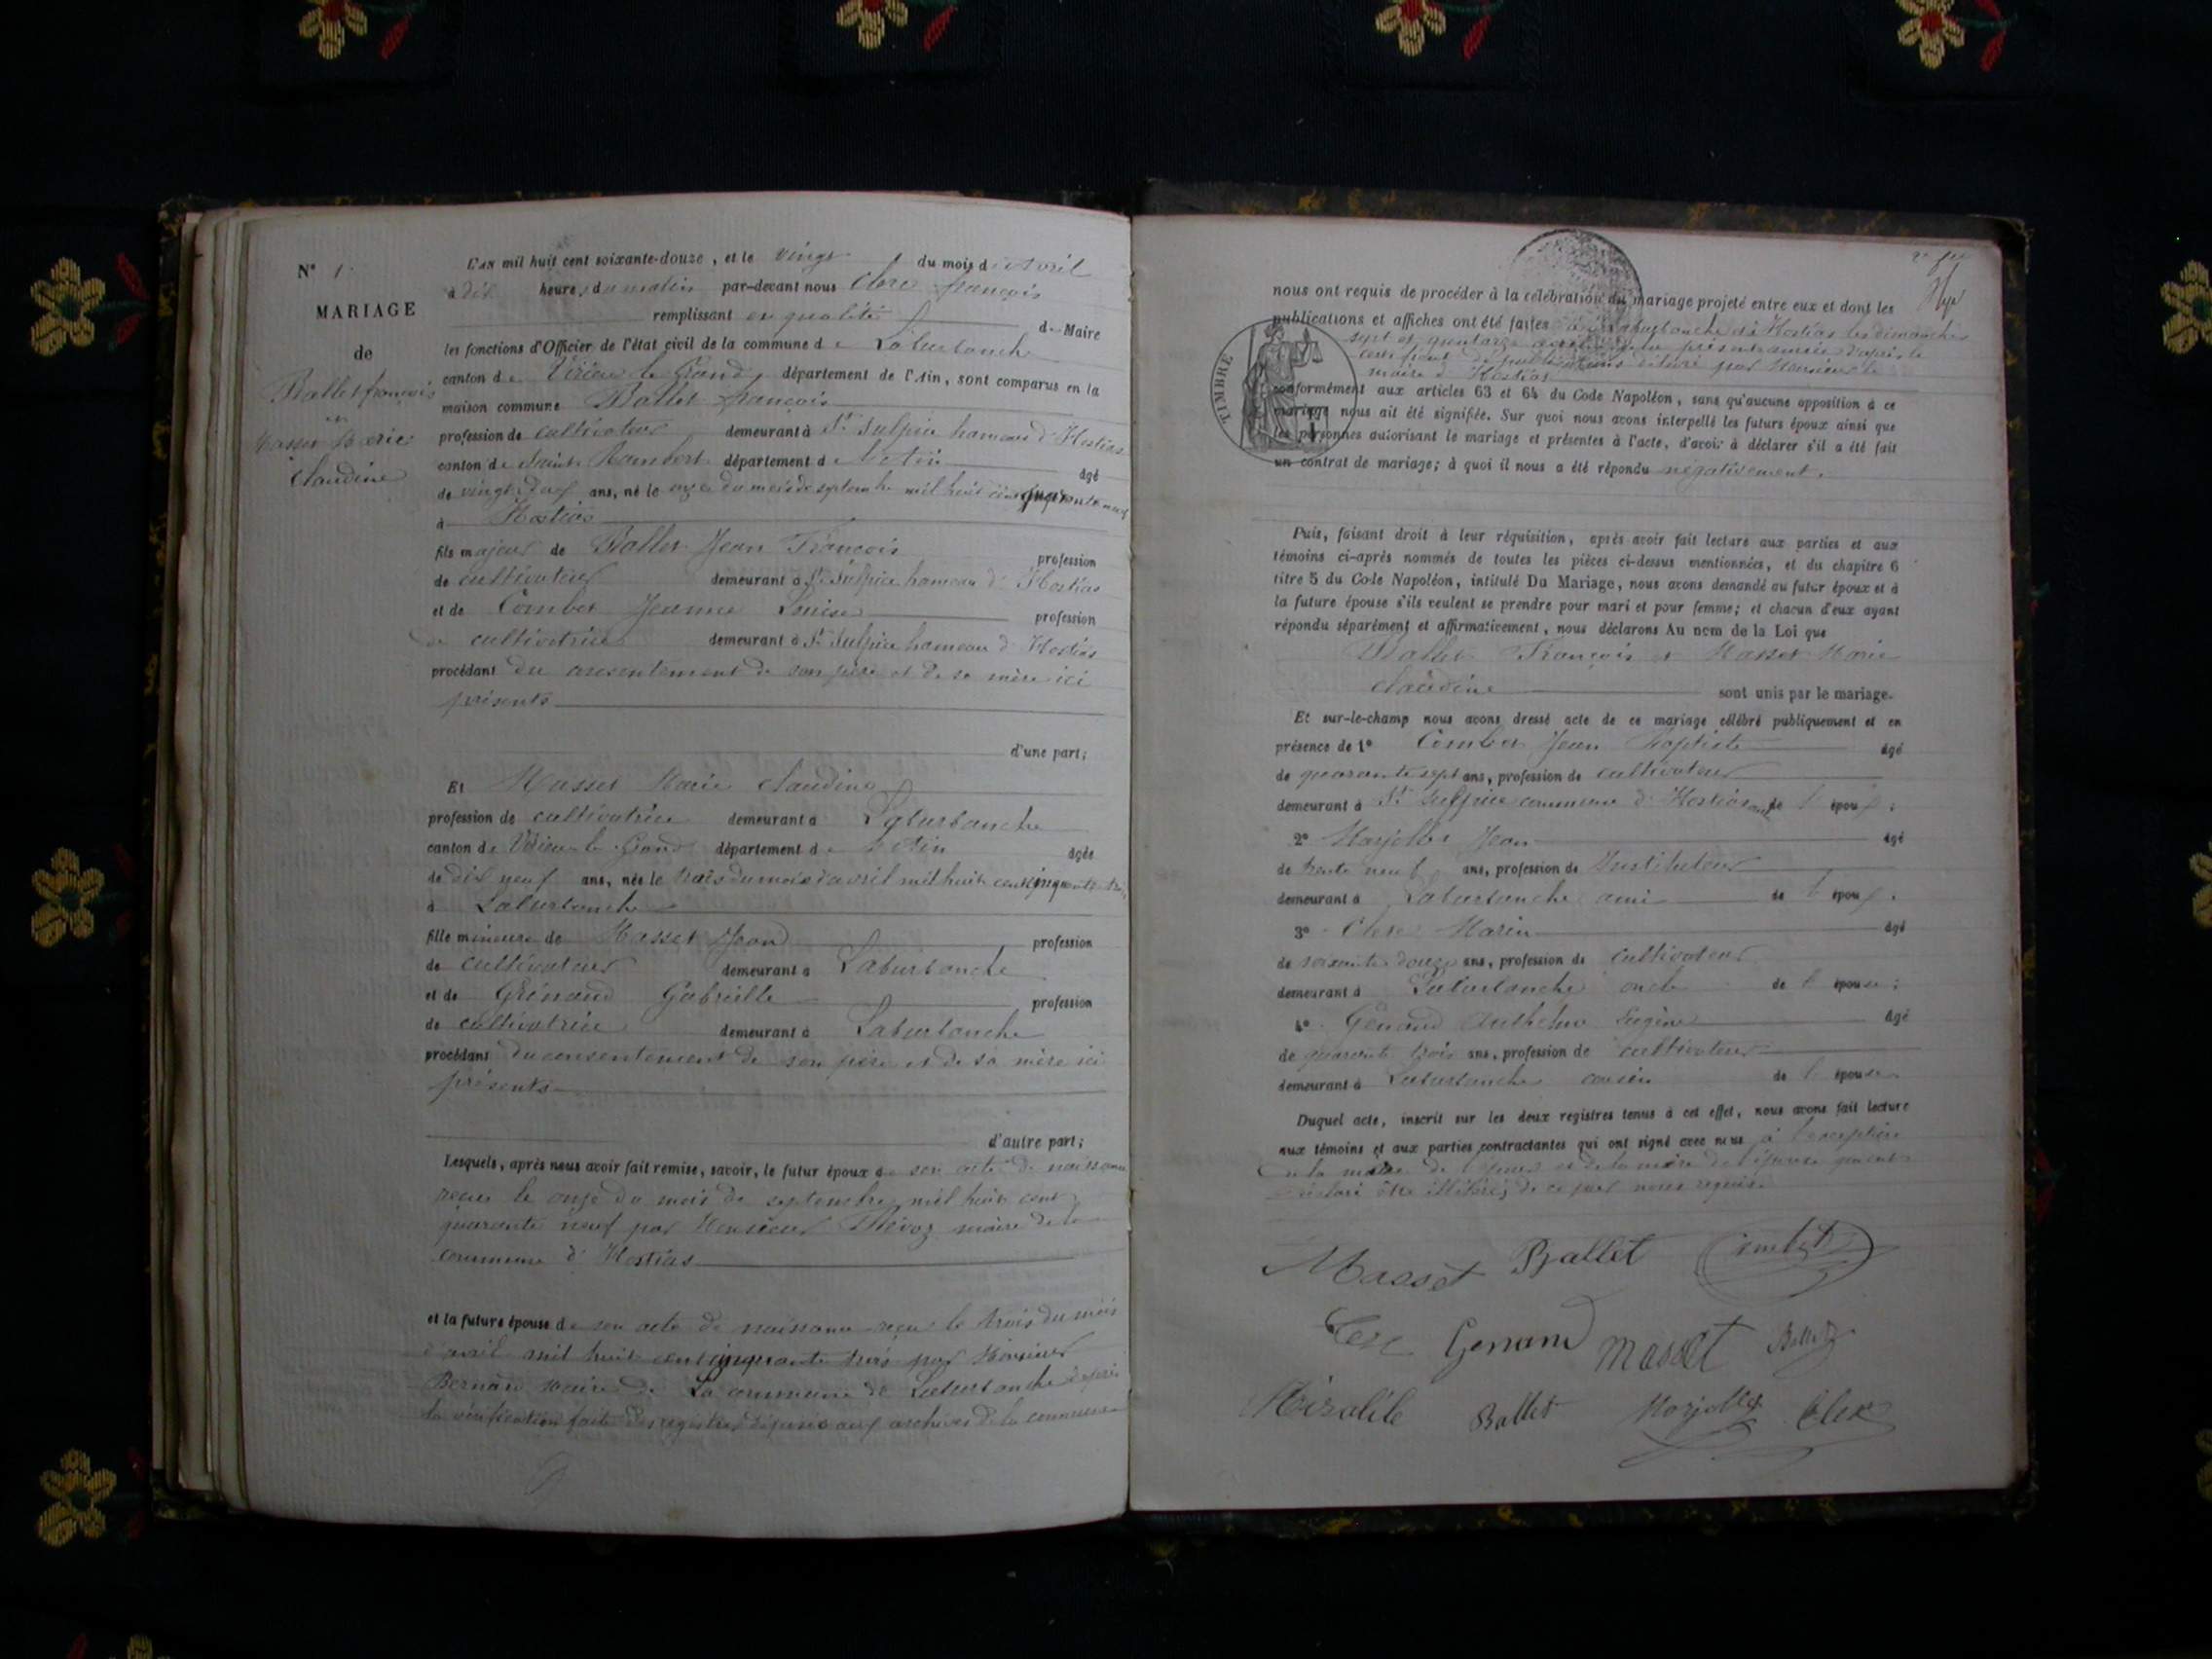 N° 1
MARIAGE
de
Ballet françois
et
Masset Marie
Claudine
L'AN mil huit cent soixante-douze, et le vingt du mois d'Avril
à dix heures du matin par-devant nous Clerc françois
remplissant en qualité de Maire
les fonctions d'Officier de l'état civil de la commune de Laburbanche
canton de Virieu le Grand, département de l'Ain, sont comparus en la
maison commune Ballet françois
profession de cultivateur demeurant à St Sulpice hameau d'Hostias
canton de Saint Rambert département de l'Ain âgé
de vingt deux ans, né le onze du mois de septembre mil huit cent quarante neuf
à Hostias
fils majeur de Ballet Jean François profession
de cultivateur demeurant à St Sulpice hameau d'Hostias
et de Combet Jeanne Louise profession
de cultivatrice demeurant à St Sulpice hameau d'Hostias
procédant du consentement de son père et de sa mère ici
présents
d'une part;
Et Masset Marie Claudine
profession de cultivatrice demeurant à Laburbanche
canton de Virieu le Grand département de l'Ain âgée
de dix neuf ans, née le trois du mois d'avril mil huit cent cinquante trois
à Laburbanche
fille mineure de Masset Jean profession
de cultivateur demeurant à Laburbanche
et de Grénand Gabrielle profession
de cultivatrice demeurant à Laburbanche
procédant du consentement de son père et de sa mère ici
présents
d'autre part;
Lesquels, après nous avoir fait remise, savoir, le futur époux de son acte de naissance
reçu le onze du mois de septembre mil huit cent
quarante neuf par Monsieur Thévoz maire de la
commune d'Hostias
et la future épouse de son acte de naissance reçu le trois du mois
d'avril mil huit cent cinquante trois par Monsieur
Bernard maire de La commune de Laburbanche d'après
la vérification faite des registres déposés aux archives de la commune
nous ont requis de procéder à la célébration du mariage projeté entre eux et dont les
publications et affiches ont été faites à Laburbanche et à Hostias les dimanches
sept et quatorze avril présente année d'après le
certificat de publications délivré par Monsieur le
maire d'Hostias
conformément aux articles 63 et 64 du Code Napoléon, sans qu'aucune opposition à ce
mariage nous ait été signifiée. Sur quoi nous avons interpellé les futurs époux ainsi que
les personnes autorisant le mariage et présentes à l'acte, d'avoir à déclarer s'il a été fait
un contrat de mariage; à quoi il nous a été répondu négativement.
TIMBRE
Puis, faisant droit à leur réquisition, après avoir fait lecture aux parties et aux
témoins ci-après nommés de toutes les pièces ci-dessus mentionnées, et du chapitre 6
titre 5 du Code Napoléon, intitulé Du Mariage, nous avons demandé au futur époux et à
la future épouse s'ils veulent se prendre pour mari et pour femme; et chacun d'eux ayant
répondu séparément et affirmativement, nous déclarons Au nom de la Loi que
Ballet François et Masset Marie
Claudine sont unis par le mariage.
Et sur-le-champ nous avons dressé acte de ce mariage célébré publiquement et en
présence de 1° Combet Jean Baptiste âgé
de quarante sept ans, profession de cultivateur
demeurant à St Sulpice commune d'Hostias de l'époux;
2° Marjollet Jean âgé
de trente neuf ans, profession de Instituteur
demeurant à Laburbanche ami de l'époux.
3° Clerc Marin âgé
de soixante douze ans, profession de cultivateur
demeurant à Laburbanche oncle de l'épouse;
4° Génand Anthelme Eugène âgé
de quarante trois ans, profession de cultivateur
demeurant à Laburbanche cousin de l'épouse
Duquel acte, inscrit sur les deux registres tenus à cet effet, nous avons fait lecture
aux témoins et aux parties contractantes qui ont signé avec nous à l'exception
de la mère de l'époux et de la mère de l'épouse qui ont
déclaré être illitérés de ce par nous requis
Masset Ballet Combet
Clerc Genand Masset Ballet
Ballet Marjollet Clerc